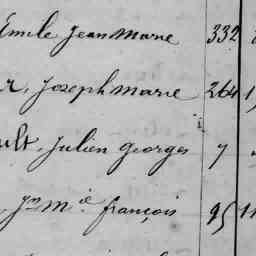 Emile Jean Marie 332
r, Joseph Marie 264 1
ult, Julien Georges 7
Jn Mie françois 95 11